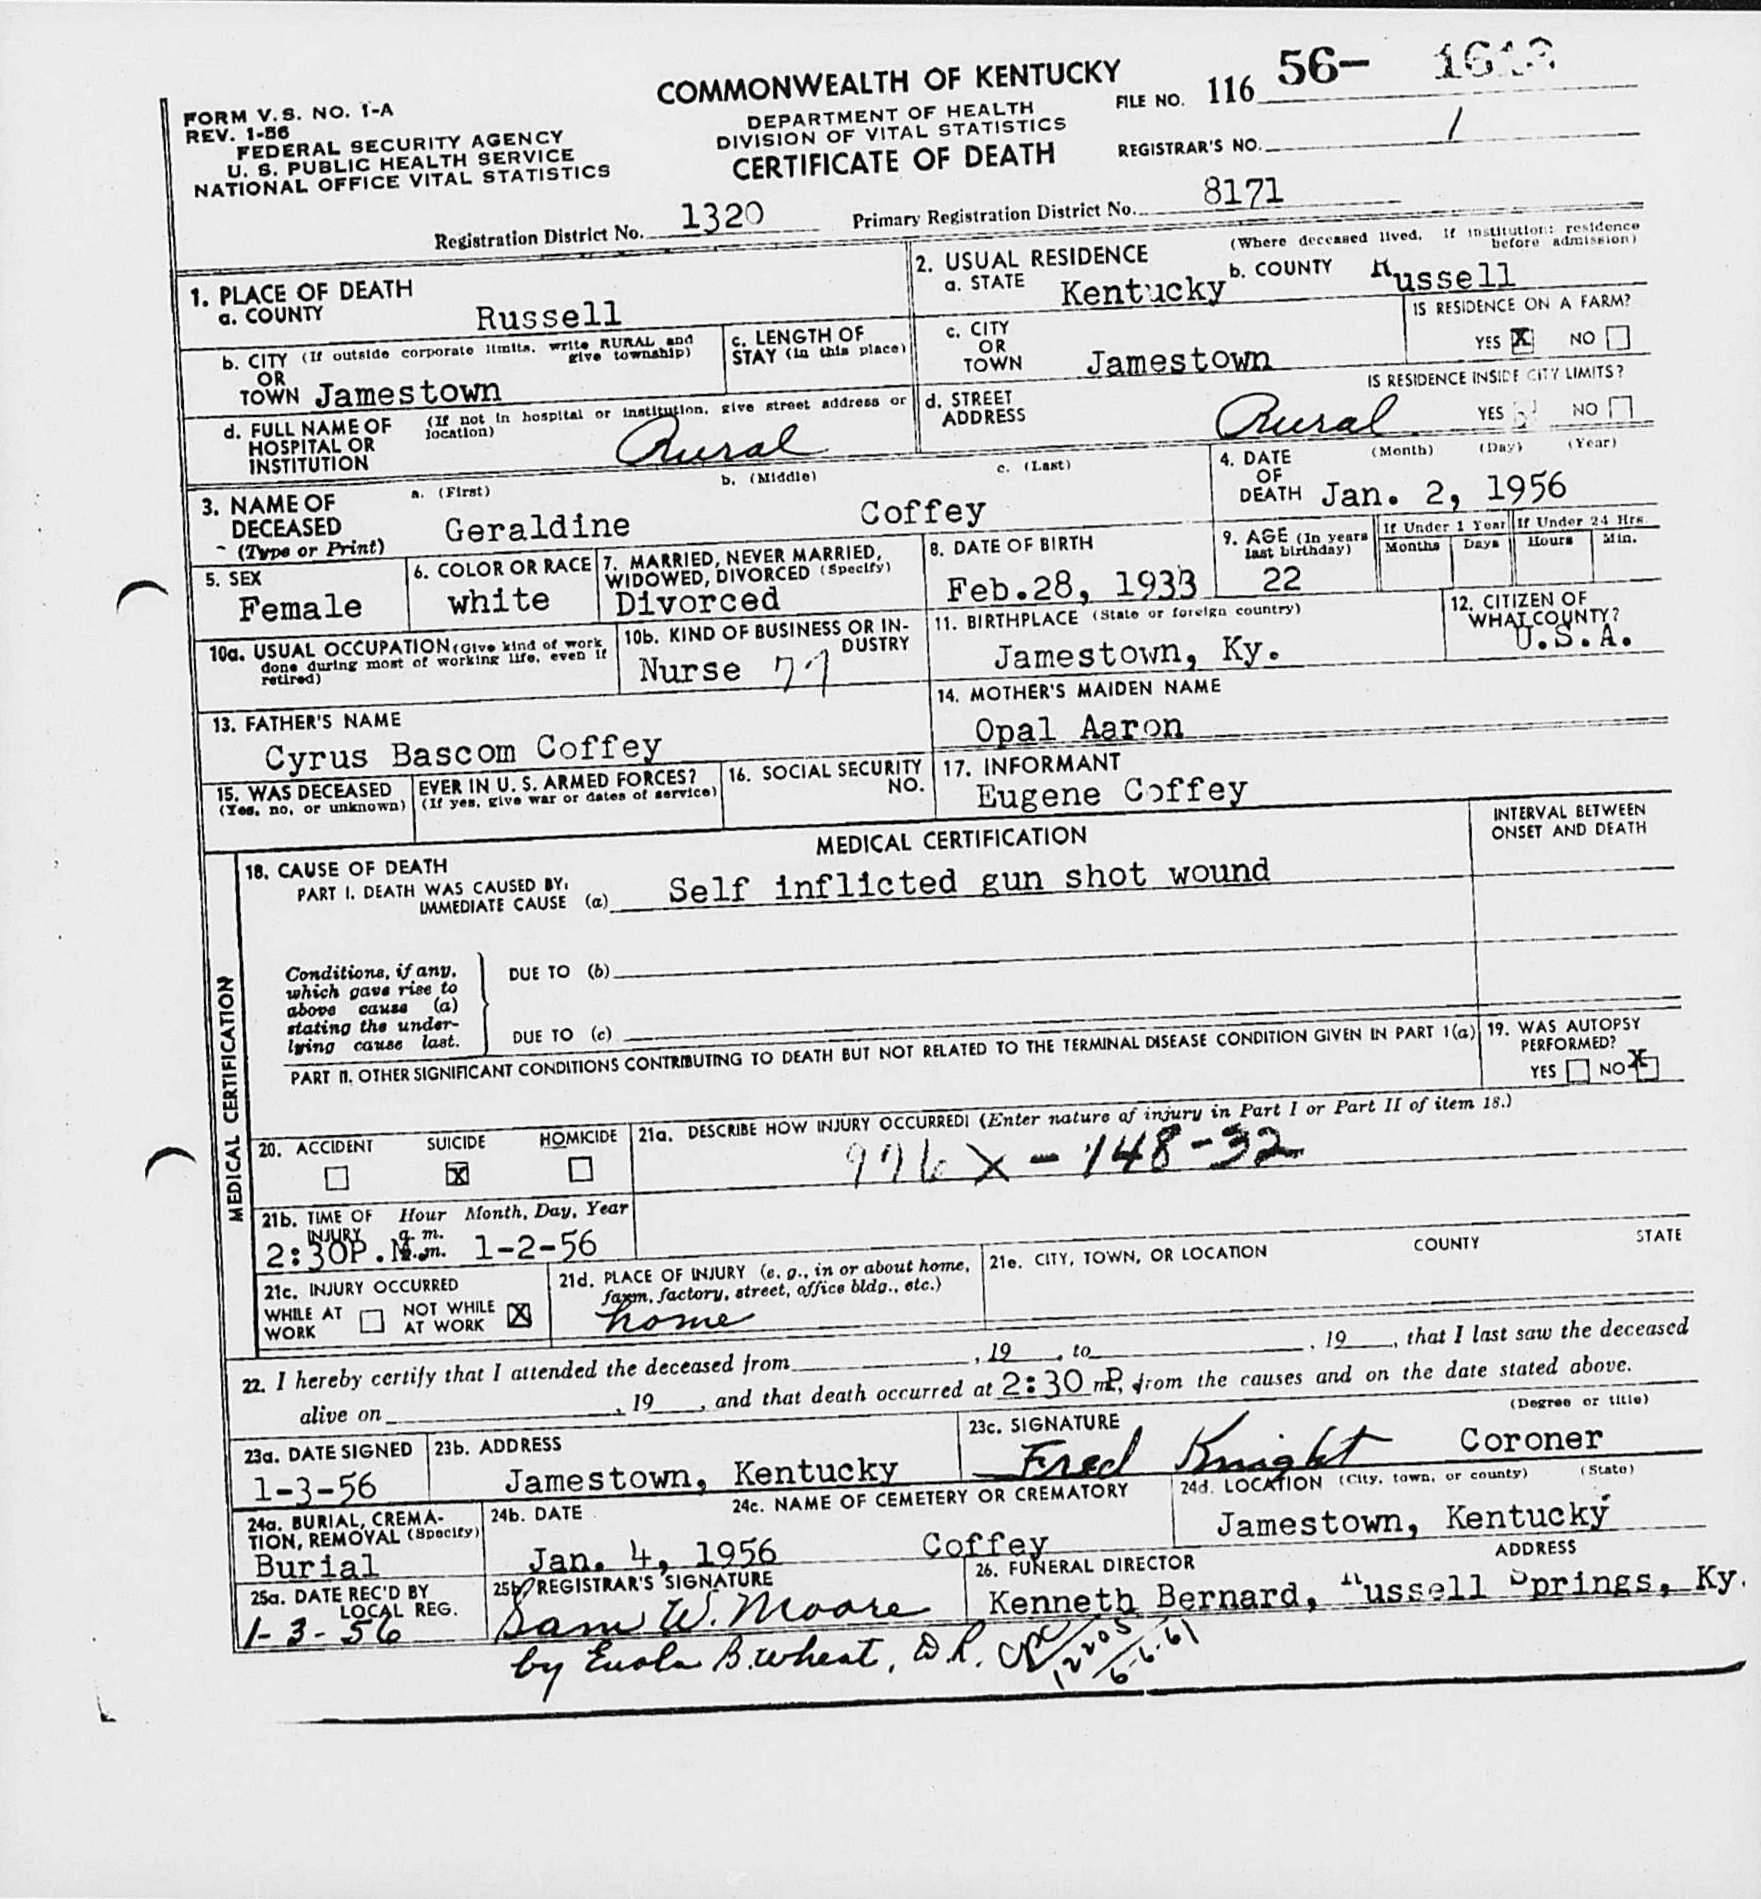 FORM V.S. NO. 1-A
REV. 1-56
FEDERAL SECURITY AGENCY
U. S. PUBLIC HEALTH SERVICE
NATIONAL OFFICE VITAL STATISTICS
COMMONWEALTH OF KENTUCKY
DEPARTMENT OF HEALTH
DIVISION OF VITAL STATISTICS
CERTIFICATE OF DEATH
FILE NO. 116 56-
REGISTRAR'S NO. 1
Registration District No. 1320 Primary Registration District No. 8171
1. PLACE OF DEATH
a. COUNTY Russell
2. USUAL RESIDENCE (Where deceased lived. If institution: residence before admission)
a. STATE Kentucky b. COUNTY Russell
b. CITY (If outside corporate limits, write RURAL and give township)
OR
TOWN Jamestown
c. LENGTH OF
STAY (in this place)
c. CITY
OR
TOWN Jamestown
IS RESIDENCE ON A FARM?
YES X NO
d. FULL NAME OF (If not in hospital or institution, give street address or location)
HOSPITAL OR
INSTITUTION Rural
d. STREET
ADDRESS Rural
IS RESIDENCE INSIDE CITY LIMITS?
YES NO
3. NAME OF
DECEASED
(Type or Print)
a. (First) b. (Middle) c. (Last)
Geraldine Coffey
4. DATE (Month) (Day) (Year)
OF
DEATH Jan. 2, 1956
5. SEX
Female
6. COLOR OR RACE
white
7. MARRIED, NEVER MARRIED,
WIDOWED, DIVORCED (Specify)
Divorced
8. DATE OF BIRTH
Feb.28, 1933
9. AGE (In years
last birthday)
22
If Under 1 Year If Under 24 Hrs
Months Days Hours Min.
10a. USUAL OCCUPATION (Give kind of work
done during most of working life, even if
retired)
10b. KIND OF BUSINESS OR IN-
DUSTRY
Nurse 77
11. BIRTHPLACE (State or foreign country)
Jamestown, Ky.
12. CITIZEN OF
WHAT COUNTY?
U.S.A.
13. FATHER'S NAME
Cyrus Bascom Coffey
14. MOTHER'S MAIDEN NAME
Opal Aaron
15. WAS DECEASED EVER IN U. S. ARMED FORCES?
(Yes, no, or unknown) (If yes, give war or dates of service)
16. SOCIAL SECURITY
NO.
17. INFORMANT
Eugene Coffey
MEDICAL CERTIFICATION
MEDICAL CERTIFICATION
INTERVAL BETWEEN
ONSET AND DEATH
18. CAUSE OF DEATH
PART I. DEATH WAS CAUSED BY:
IMMEDIATE CAUSE (a) Self inflicted gun shot wound
Conditions, if any,
which gave rise to
above cause (a)
stating the under-
lying cause last.
DUE TO (b)
DUE TO (c)
PART II. OTHER SIGNIFICANT CONDITIONS CONTRIBUTING TO DEATH BUT NOT RELATED TO THE TERMINAL DISEASE CONDITION GIVEN IN PART 1(a)
19. WAS AUTOPSY
PERFORMED?
YES NO X
20. ACCIDENT SUICIDE HOMICIDE
X
21a. DESCRIBE HOW INJURY OCCURRED! (Enter nature of injury in Part I or Part II of item 18.)
976 X - 148-32
21b. TIME OF Hour Month, Day, Year
INJURY a. m.
2:30P.M. m. 1-2-56
21c. INJURY OCCURRED
WHILE AT NOT WHILE
WORK AT WORK X
21d. PLACE OF INJURY (e. g., in or about home,
farm, factory, street, office bldg., etc.)
home
21e. CITY, TOWN, OR LOCATION COUNTY STATE
22. I hereby certify that I attended the deceased from , 19 , to , 19 , that I last saw the deceased
alive on , 19 , and that death occurred at 2:30 mP, from the causes and on the date stated above.
23a. DATE SIGNED
1-3-56
23b. ADDRESS
Jamestown, Kentucky
23c. SIGNATURE (Degree or title)
Fred Knight Coroner
24a. BURIAL, CREMA-
TION, REMOVAL (Specify)
Burial
24b. DATE
Jan. 4, 1956
24c. NAME OF CEMETERY OR CREMATORY
Coffey
24d. LOCATION (City, town, or county) (State)
Jamestown, Kentucky
25a. DATE REC'D BY
LOCAL REG.
1-3-56
25b. REGISTRAR'S SIGNATURE
Sam W. Moore
by Euola B. Wheat, D.R.
26. FUNERAL DIRECTOR ADDRESS
Kenneth Bernard, Russell Springs, Ky.
12205
6-6-61